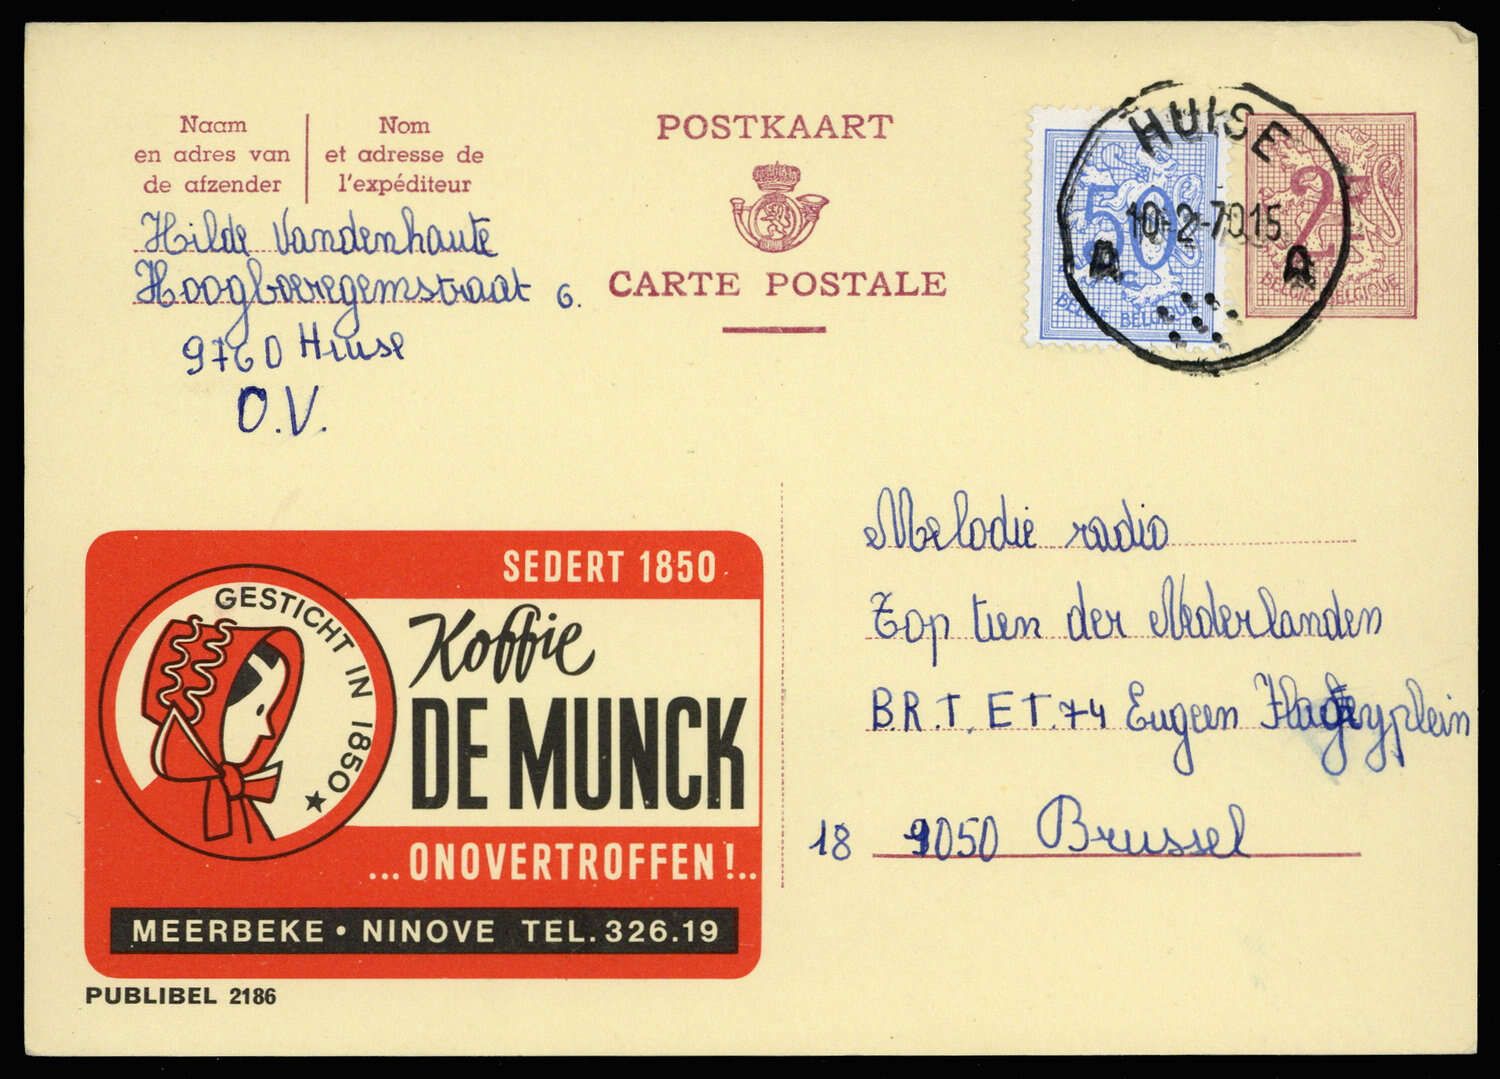 Naam
en adres van
de afzender
Nom
et adresse de
l'expéditeur
POSTKAART
CARTE POSTALE
50
BELGIË BELGIQUE
2F
BELGIË-BELGIQUE
HUISE
10-2-70 15
A A
Hilde Vandenhaute
Hoogboeregemstraat 6.
9760 Huise
O.V.
SEDERT 1850
GESTICHT IN 1850 ★
Koffie
DE MUNCK
...ONOVERTROFFEN!..
MEERBEKE • NINOVE TEL. 326.19
PUBLIBEL 2186
Melodie radio
Top tien der Nederlanden
B.R.T. E T.74 Eugeen Flageyplein
18 1050 Brussel